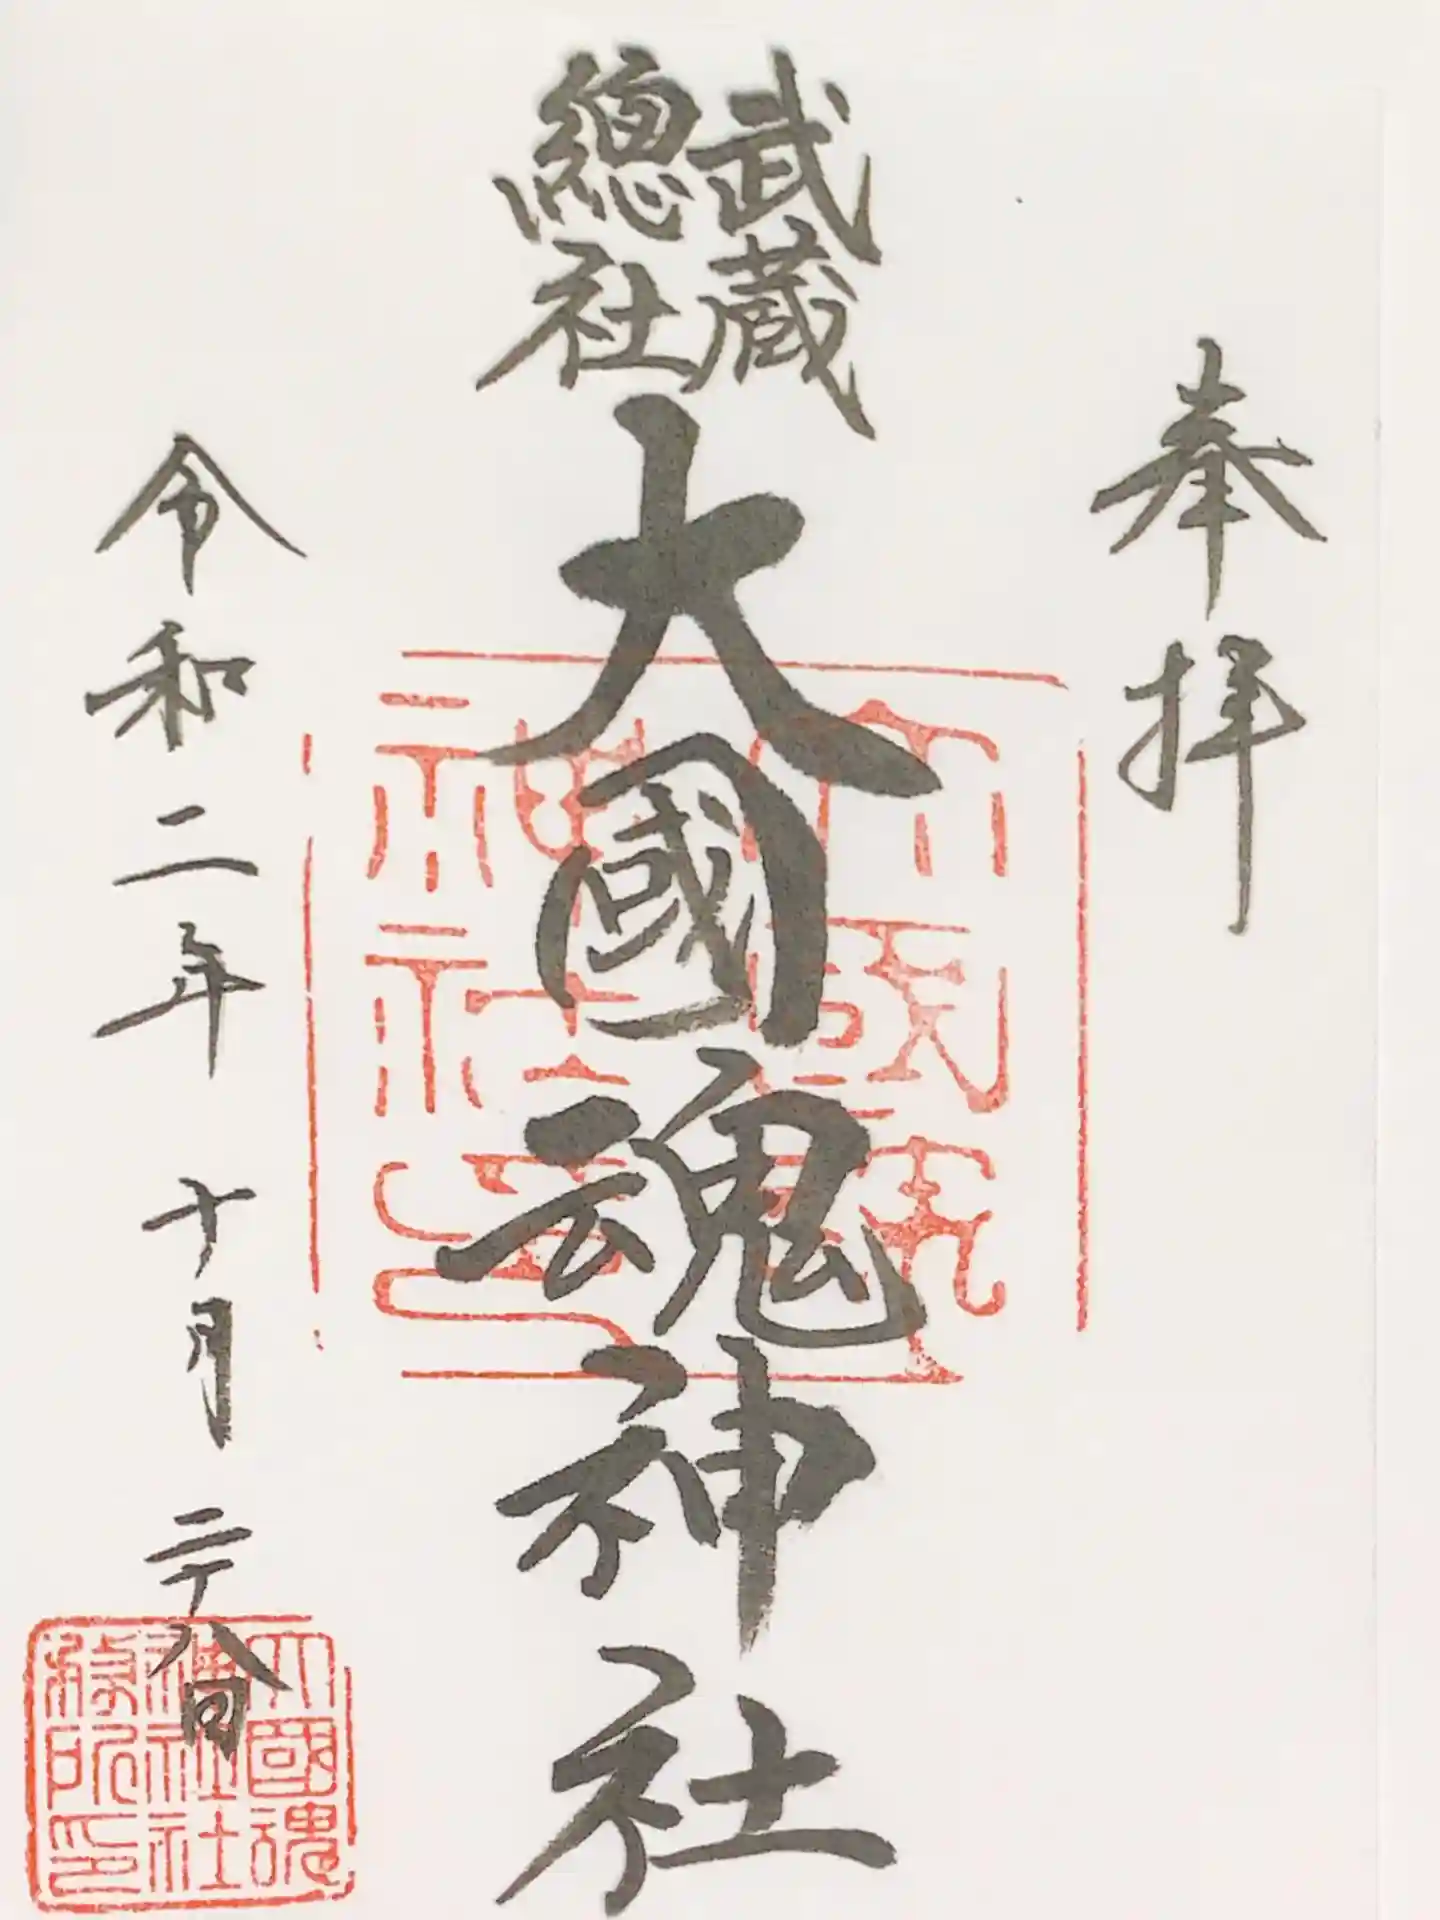 奉拝
武蔵
總社
大國魂神社
令和二年 十月 二十八日
大國魂
神社社
務所印